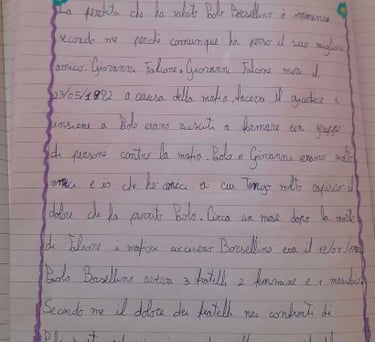 La perdita che ha subito Paolo Borsellino è immensa
secondo me perché comunque ha perso il suo migliore
amico: Giovanni Falcone. Giovanni Falcone morì il
23/05/1992 a causa della mafia. faceva il giudice e
insieme a Paolo erano riusciti a formare un gruppo
di persone contro la mafia. Paolo e Giovanni erano molto
amici e io che ho amici a cui Tengo molto capisco il
dolore che ha provato Paolo. Circa un mese dopo la morte
di Falcone i mafiosi uccisero Borsellino era il
Paolo Borsellino aveva 3 fratelli 2 femmine e 1 maschio
Secondo me il dolore dei fratelli nei confronti di